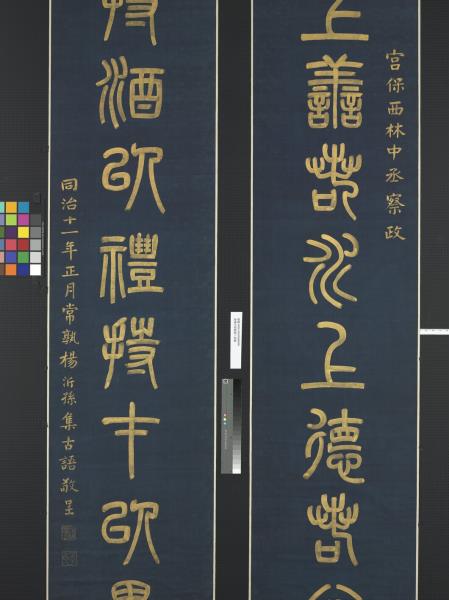 宮保西林中丞察政
上善若水上德若
持酒以禮持才以
同治十一年正月常孰楊沂孫集古語敬呈